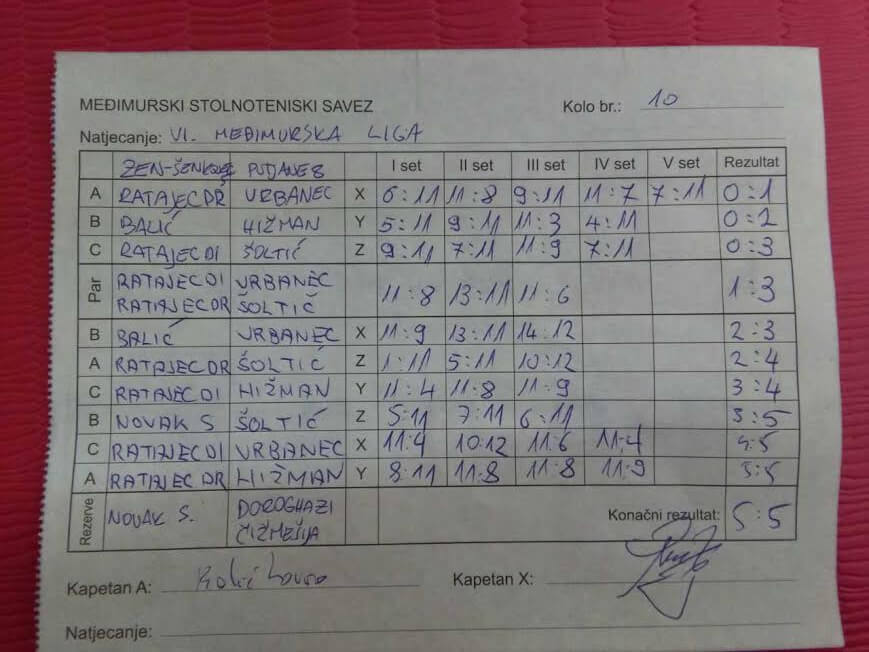 MEĐIMURSKI STOLNOTENISKI SAVEZ Kolo br.: 10
Natjecanje: VI. MEĐIMURSKA LIGA
PUDANEB I set II set III set IV set V set Rezultat
A RATAJEC DR URBANEC X 6:11 11:8 9:11 11:7 7:11 0:1
B BALIĆ HIŽMAN Y 5:11 9:11 11:3 4:11 0:2
C RATAJEC DI ŠOLTIĆ Z 9:11 7:11 11:9 7:11 0:3
Par RATAJEC DI URBANEC
RATAJEC DR ŠOLTIČ 11:8 13:11 11:6 1:3
B BALIĆ URBANEC X 11:9 13:11 14:12 2:3
A RATAJEC DR ŠOLTIĆ Z 1:11 5:11 10:12 2:4
C RATAJEC DI HIŽMAN Y 11:4 11:8 11:9 3:4
B NOVAK S ŠOLTIĆ Z 5:11 7:11 6:11 3:5
C RATAJEC DI URBANEC X 11:4 10:12 11:6 11:4 4:5
A RATAJEC DR HIŽMAN Y 8:11 11:8 11:8 11:9 5:5
Rezerve NOVAK S. DOROGHAZI
ČIŽMEŠIJA Konačni rezultat: 5:5
Kapetan A: Kapetan X:
Natjecanje: